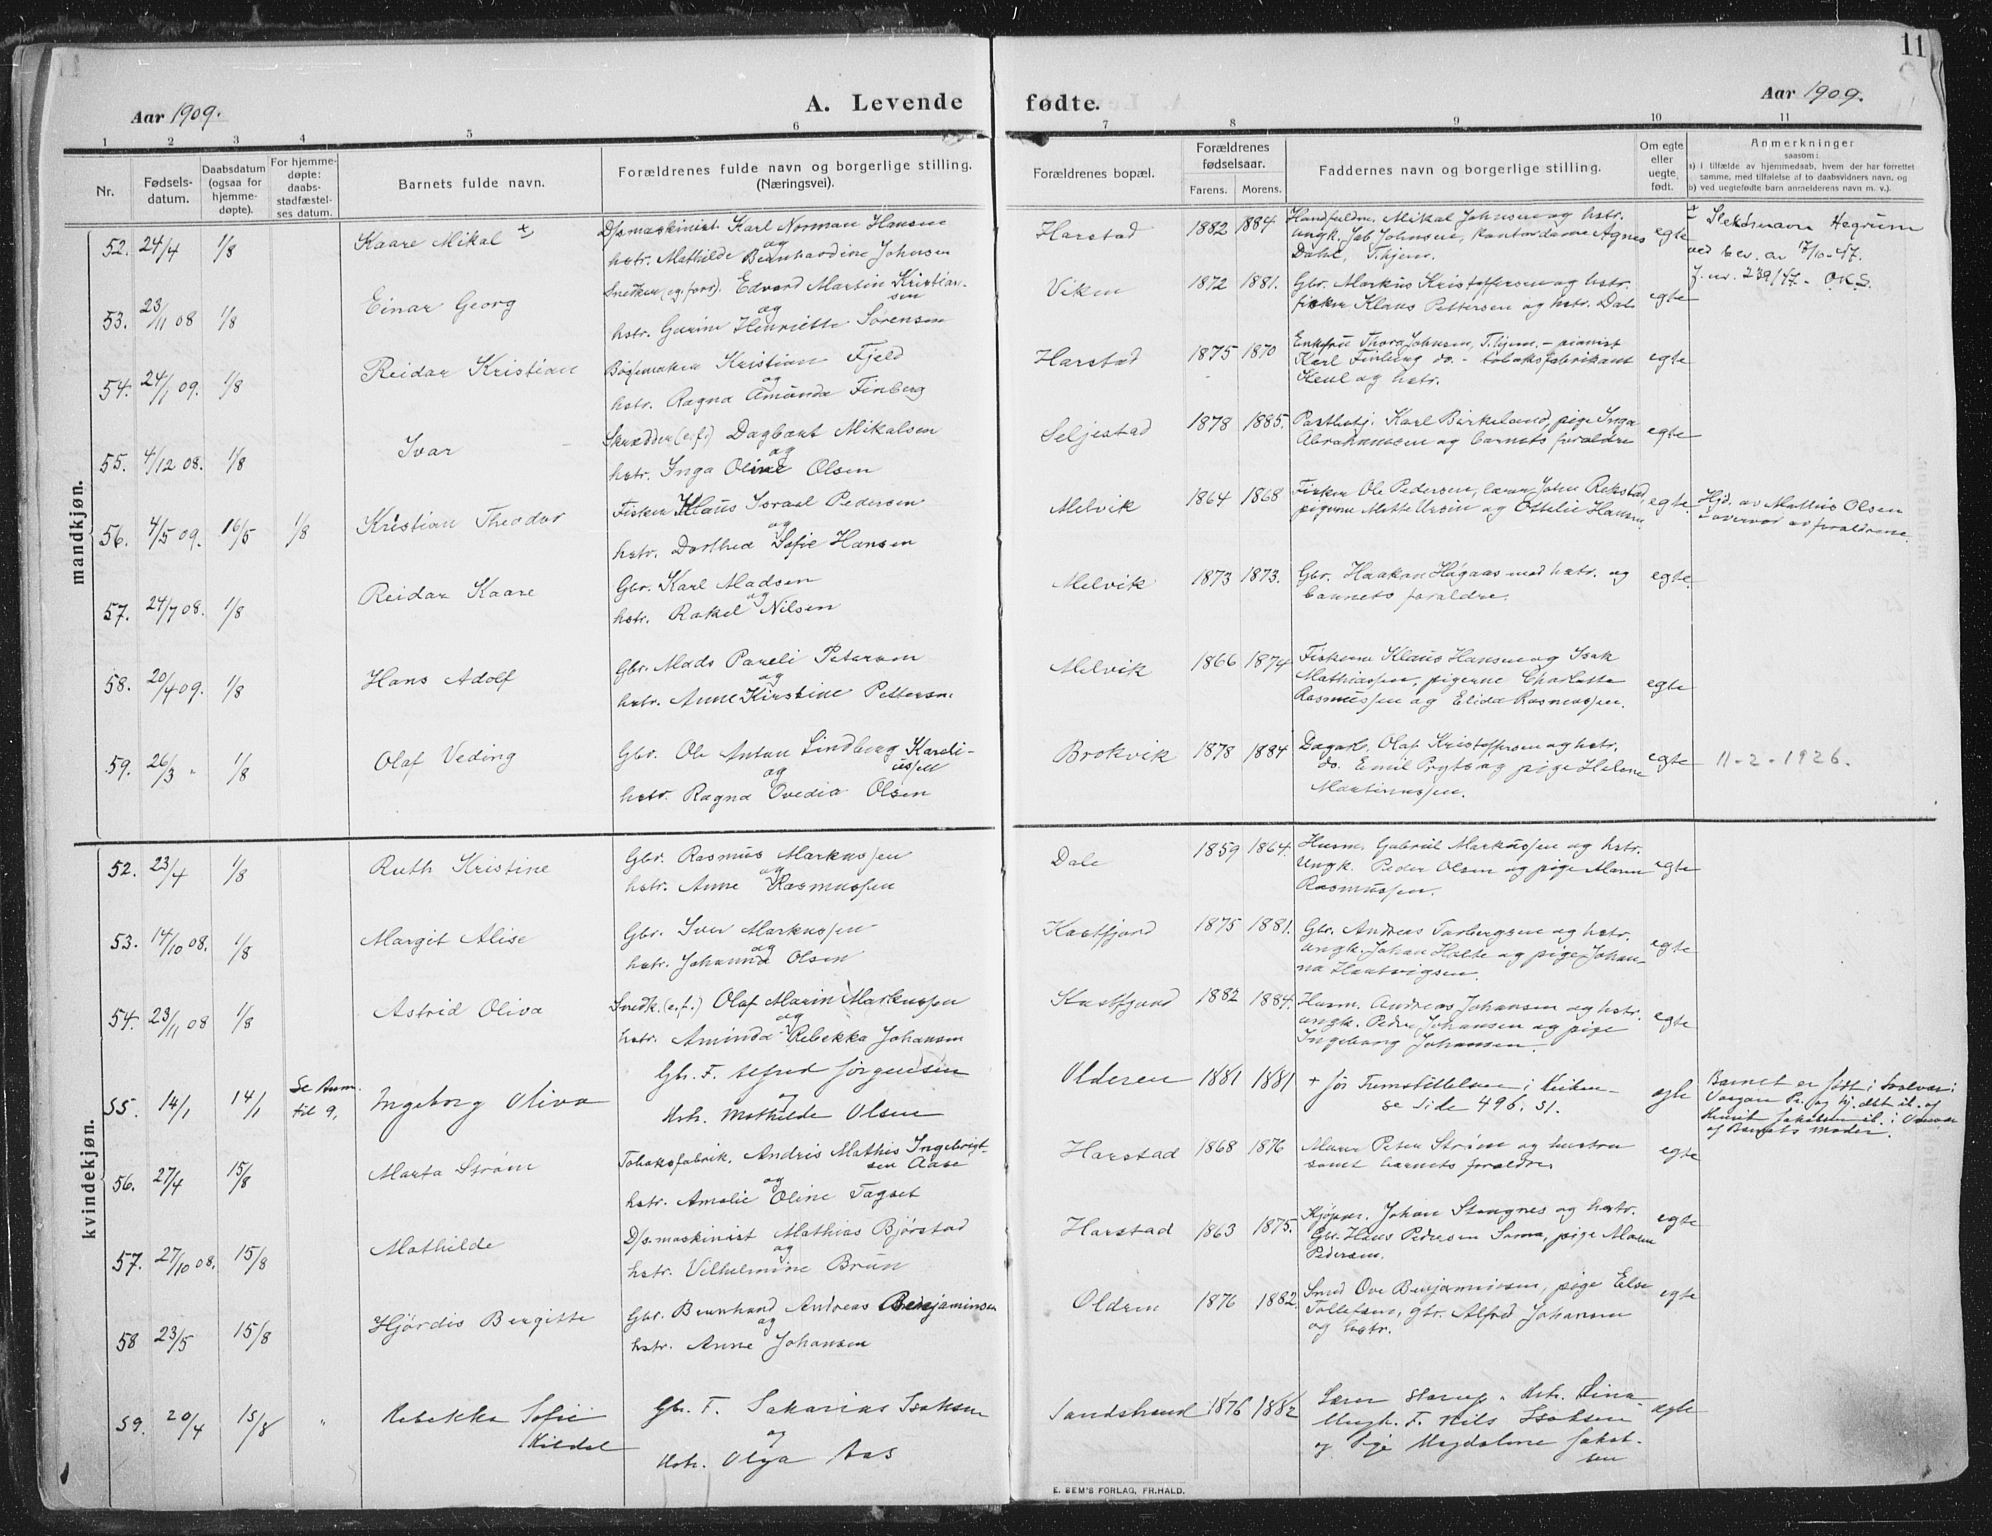 11
Aar 1909.
A. Levende fødte.
Aar 1909.
1 2 3 4 5 6 7 8 9 10 11
Nr.
Fødsels-
datum.
Daabsdatum
(ogsaa for
hjemme-
døpte).
For hjemme-
døpte:
daabs-
stadfæstel-
ses datum.
Barnets fulde navn.
Forældrenes fulde navn og borgerlige stilling.
(Næringsvei).
Forældrenes bopæl.
Forældrenes
fødselsaar.
Farens. Morens.
Faddernes navn og borgerlige stilling.
Om egte
eller
uegte
født.
Anmerkninger
saasom:
a) i tilfælde av hjemmedaab, hvem der har forrettet
samme, med tilføielse af to daabsvidners navn, og
b) ved uegtefødte barn anmelderens navn m. v.)
mandkjøn.
52. 24/4 1/8 Kaare Mikal
D/s maskinist Karl Norman Hansen
og
hstr. Mathilde Bernhardine Johnsen
Harstad 1882 1884
Handfuldm. Mikal Johnsen og hstr.
ungk. Jab Johnsen, kontordame Agnes
Dahl, T.hjem.
egte
Slektsnavn Hegrum
ved bev. av 7/10-47.
J. nr. 239/47- O.K.S.
53. 23/11 08 1/8 Einar Georg
Snedker (og forr). Edvard Martin Kristian-
sen
og
hstr. Gurine Henriette Sørensen
Viken 1872 1881.
Gbr. Markus Kristoffersen og hstr.
fisker Klaus Pettersen og hstr. Dale
egte
54. 24/1 09. 1/8 Reidar Kristian
Bøssemaker Kristian Fjeld
og
hstr. Ragna Amunda Finberg
Harstad 1875 1870
Enkefru Thora Johnsen, T.hjem, - pianist
Karl Finberg do. - tobaksfabrikant
Keul og hstr.
egte
55. 4/12 08. 1/8 Ivar
Skrædder (e.f.) Dagbart Mikalsen
og
hstr. Inga Oline Olsen
Seljestad 1878 1885.
Karl Birkeland, pige Inga
Abrahamsen og barnets foraldre
egte
56. 4/5 09. 16/5 1/8 Kristian Theodor
Fisker Klaus Israel Pedersen
og
hstr. Dorthea Sofie Hansen
Melvik 1864 1868
Fisker Ole Pedersen, lærer John Rekstad,
pigerne Mette Ursin og Ottilie Hansen
egte.
Hjd. av Mathis Olsen
overvær av foraldrene.
57. 24/7 08. 1/8 Reidar Kaare
Gbr. Karl Madsen
og
hstr. Rakel Nilsen
Melvik 1873 1873.
Gbr. Haakon Hågaas med hstr. og
barnets foraldre.
egte
58. 20/4 09. 1/8 Hans Adolf
Gbr. Mads Pareli Petersen
og
hstr. Anne Kirstine Pettersen
Melvik 1866 1874
Fiskerne Klaus Hansen og Isak
Mathiassen, pigerne Charlotte
Rasmussen og Elida Rasmussen.
egte
59. 26/3 " 1/8 Olaf Veding
Gbr. Ole Antan Lindberg Kareli-
ussen
og
hstr. Ragna Ovedia Olsen
Brokvik 1878 1884
Dagarb. Olaf Kristoffersen og hstr.
do. Emil Prytz og pige Helene
Martinussen.
egte
11-2-1926.
kvindekjøn.
52. 23/4 1/8 Ruth Kristine
Gbr. Rasmus Markussen
og
hstr. Anne Rasmussen
Dale 1859 1864.
Husm. Gabriel Markussen og hstr.
Ungk. Peder Olsen og pige Maren
Rasmussen.
egte
53. 14/10 08. 1/8 Margit Alise
Gbr. Iver Markussen
og
hstr. Johanna Olsen
Kastfjord 1875 1881.
Gbr. Andreas Torbergsen og hstr.
ungk. Johan Holte og pige Johan-
na Hartvigsen.
egte
54. 23/11 08 1/8 Astrid Oliva
Snedk. (e.f.) Olaf Marin Markussen
og
hstr. Aminda Rebekka Johansen
Kastfjord 1882 1884.
Husm. Andreas Johansen og hstr.
ungk. Peder Johansen og pige
Ingeborg Johansen.
egte
55. 14/1 14/1 Se Anm. til 9. Ingeborg Oliva
Gb. F. Alfred Jørgensen
og
Hstr. Mathilde Olsen
Olderen 1881 1881
+ før Fremstillelsen i Kirken-
se Side 496. 51.
egte
Barnet er født i Svolvær i
Vaagan Pr. og hj. døbt il. af
Henrik Jakobsen il. i Overvær
af Barnets Moder.
56. 27/4 15/8 Marta Strøm
Tobaksfabrik. Andris Mathis Ingebrigt-
sen Aase
og
hstr. Amalie Oline Tagset
Harstad 1868 1876
Murer Peter Strøm og hustru
samt barnets foraldre.
egte
57. 27/10 08. 15/8 Mathilde
D/s maskinist Mathias Bjørstad
og
hstr. Vilhelmine Brun
Harstad 1863 1875.
Kjøpm. Johan Stangnes og hstr.
Gbr. Hans Pedersen Sama, pige Maren
Pedersen.
egte
58 23/5 15/8 Hjørdis Bergitte
Gbr. Bernhard Andreas Benjaminsen
og
hstr. Anne Johansen
Olderen 1876 1882.
Smed Ove Benjaminsen, pige Else
Tollefsen, gbr. Alfred Johansen
og hstr.
egte
59. 20/4 15/8 " Rebekka Sofie
Kildal
Gbr. F. Sakarias Isaksen
og
Hstr. Olga Aas
Sandstrand 1876 1882
Lærer Storup, Hstr. Lina
Ungk. F. Nils Isaksen
og Pige Magdalene Jakob-
sen
egte
E. SEM'S FORLAG, FR.HALD.